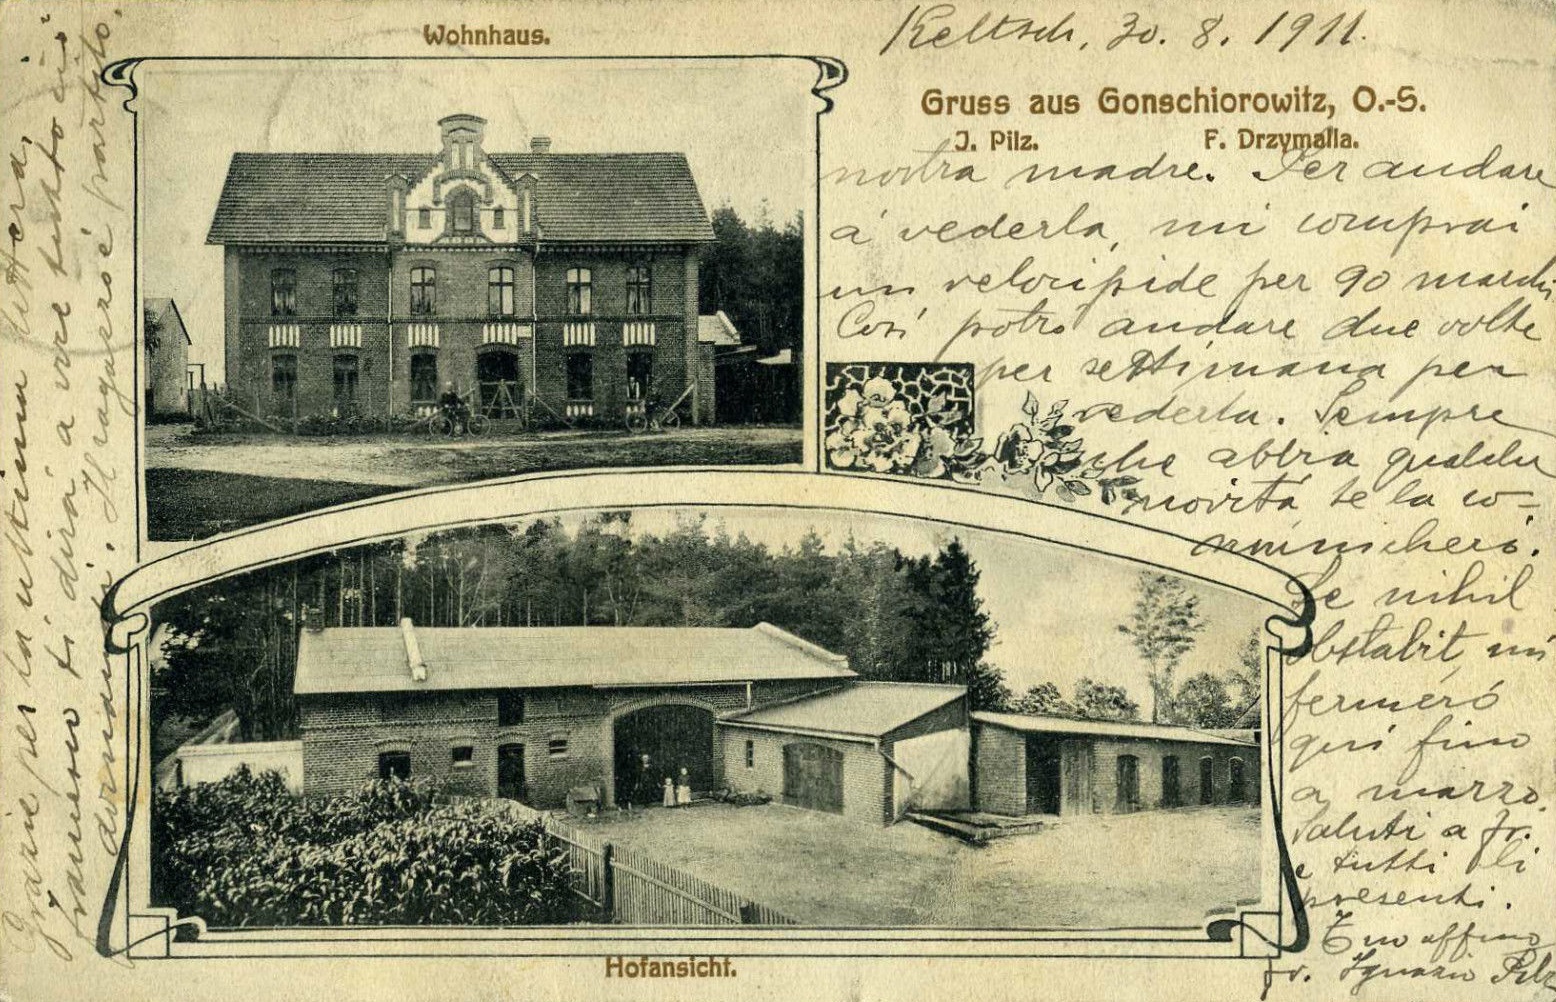 Wohnhaus.
Keltsch, 30. 8. 1911.
Gruss aus Gonschiorowitz, O.-S.
J. Pilz. F. Drzymalla.
nostra madre. Per andare
á vederla, mi comprai
un velocipide per 90 marchi
Così potró andare due volte
per settimana per
vederla. Sempre
che abbia qualche
novitá te la co-
municheró.
Se nihil
obstabit, mi
fermeró
qui fino
a marzo.
Saluti a fr.
e tutti gli
presenti.
Tuo affmo
fr. Ignazio Pilz
Grazie per la ultima lettera;
frameno ti dirá a voce tutto ciò
Il ragazzo é partito.
Hofansicht.